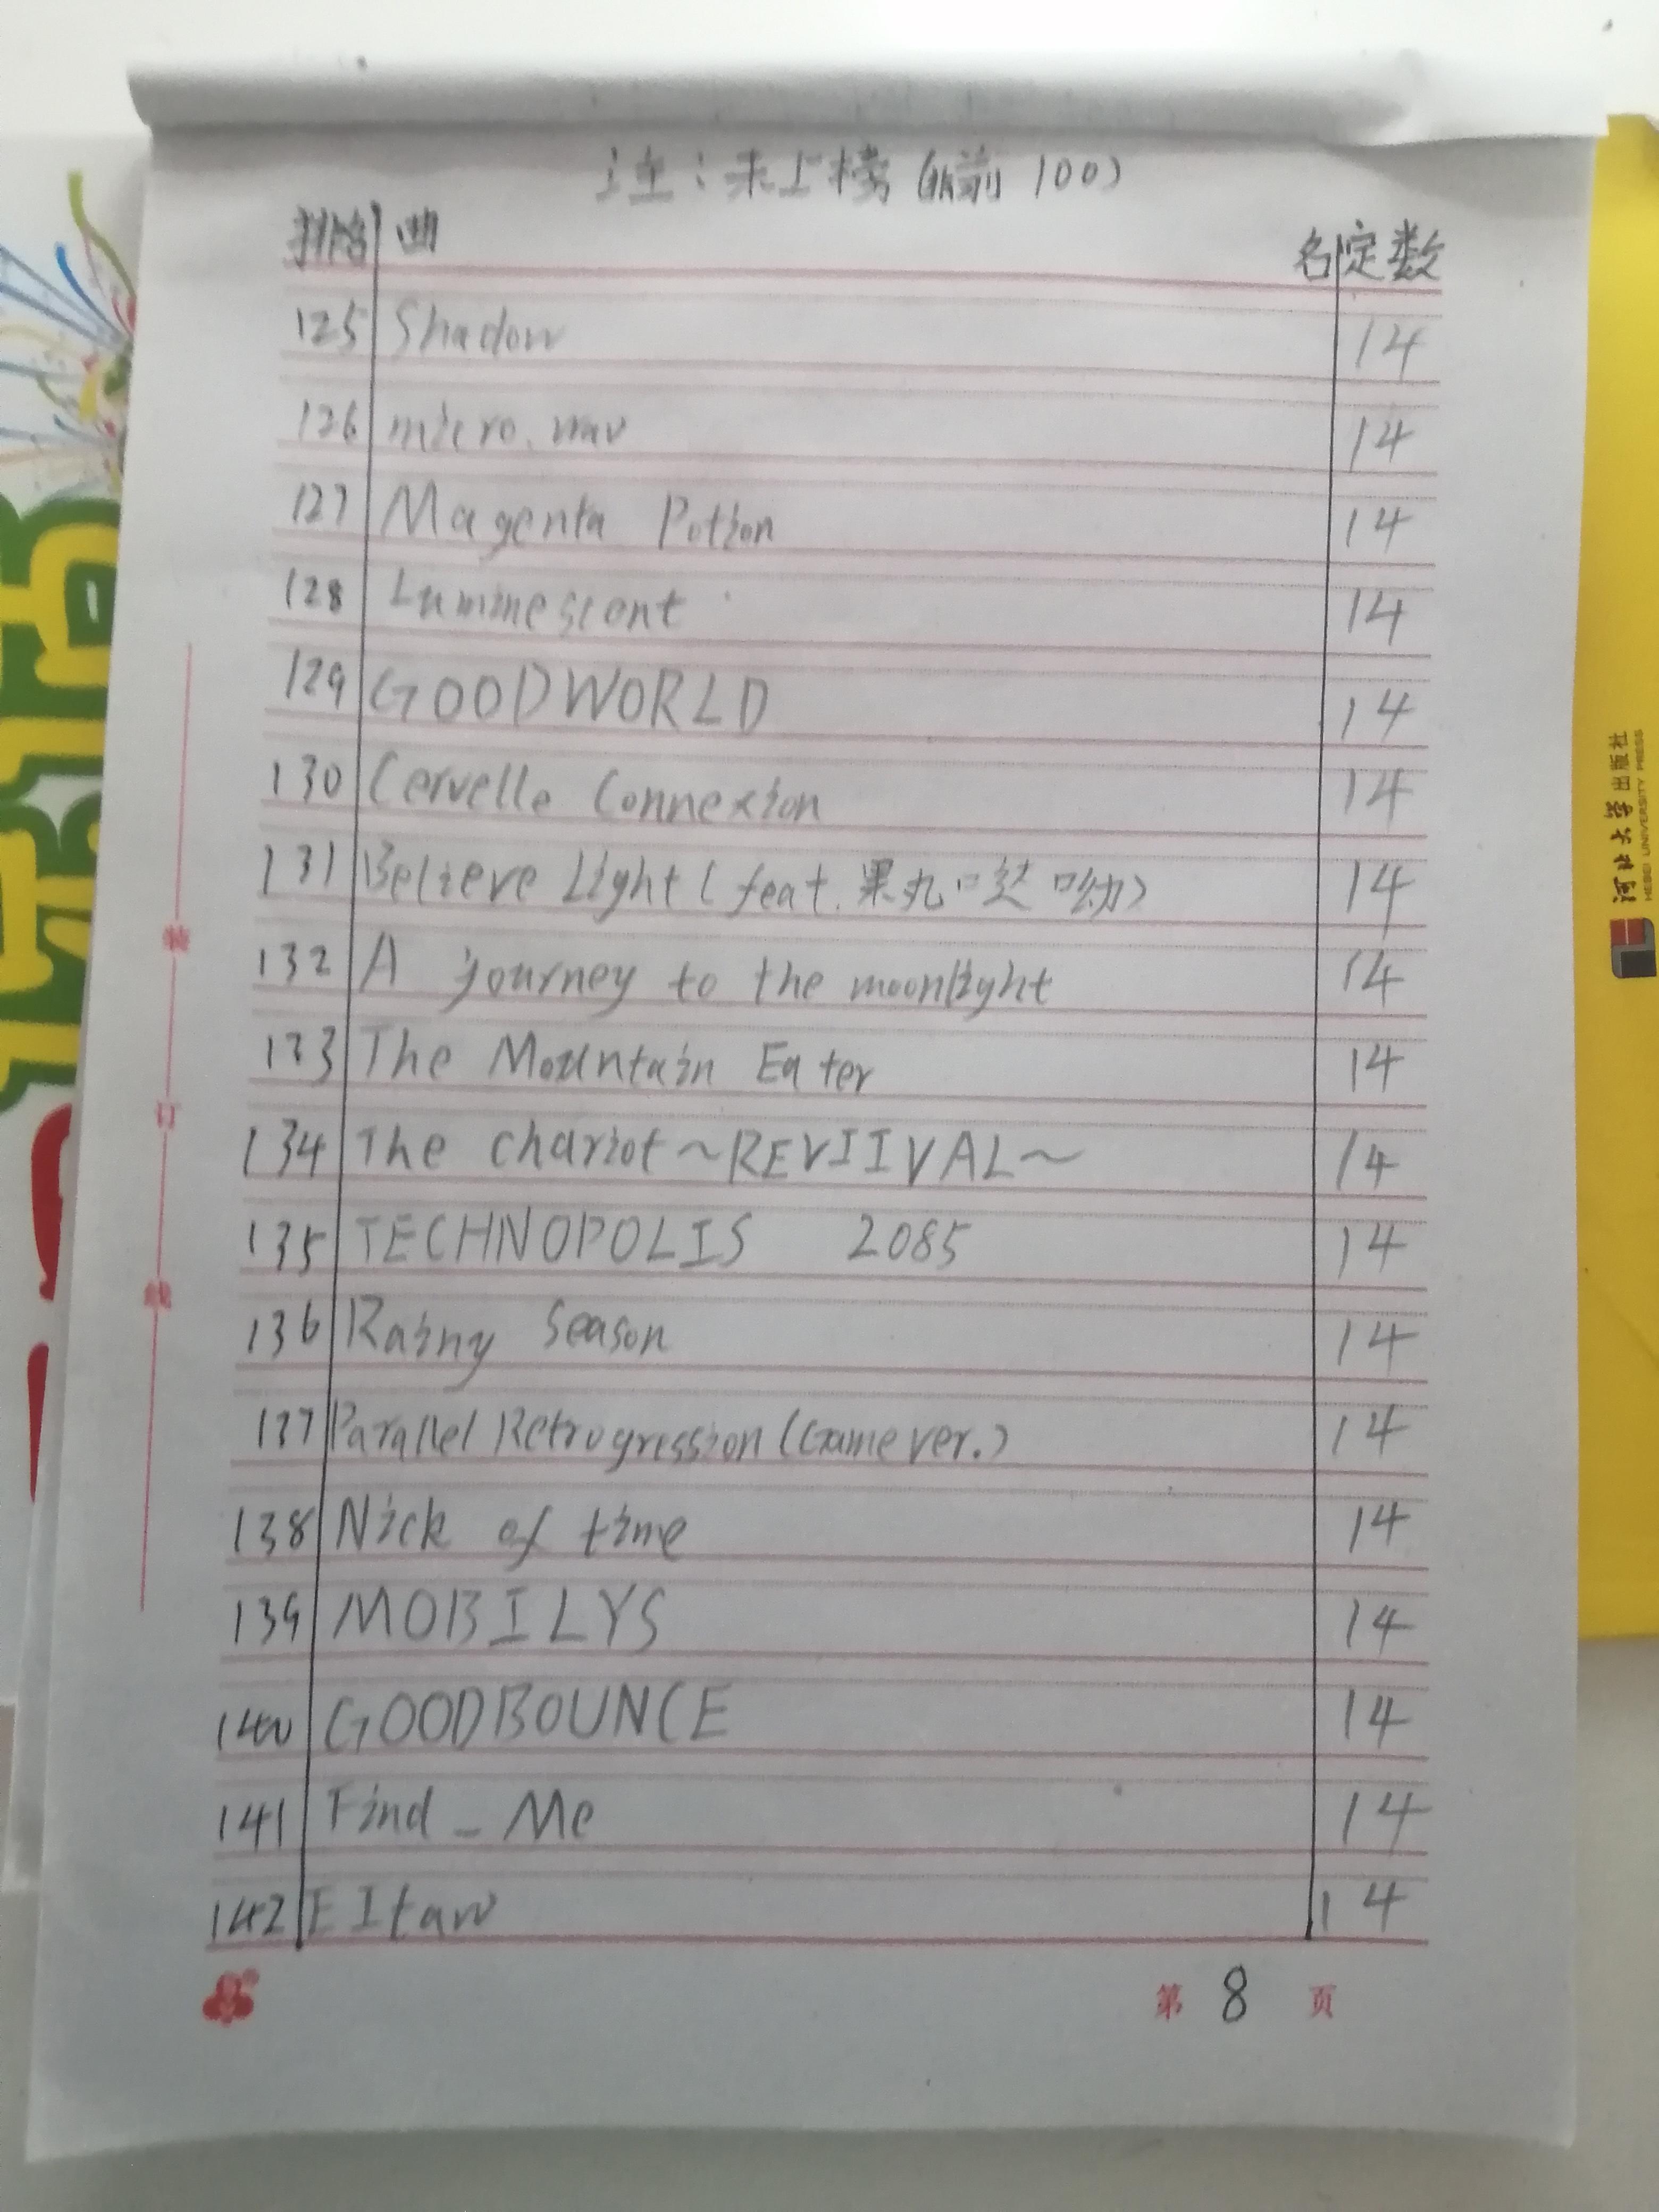 注：未上榜(前100)
排名 曲名 定数
125 Shadow 14
126 micro.wav 14
127 Magenta Potion 14
128 Luminescent 14
129 GOODWORLD 14
130 Cervelle Connexion 14
131 Believe Light(feat.果丸哒呦) 14
132 A journey to the moonlight 14
133 The Mountain Eater 14
134 The Chariot~REVIIVAL~ 14
135 TECHNOPOLIS 2085 14
136 Rainy Season 14
137 Parallel Retrogression(Game ver.) 14
138 Nick of time 14
139 MOBILYS 14
140 GOODBOUNCE 14
141 Find_Me 14
142 EItaw 14
第 8 页
装
订
线
河北大学出版社
HEBEI UNIVERSITY PRESS